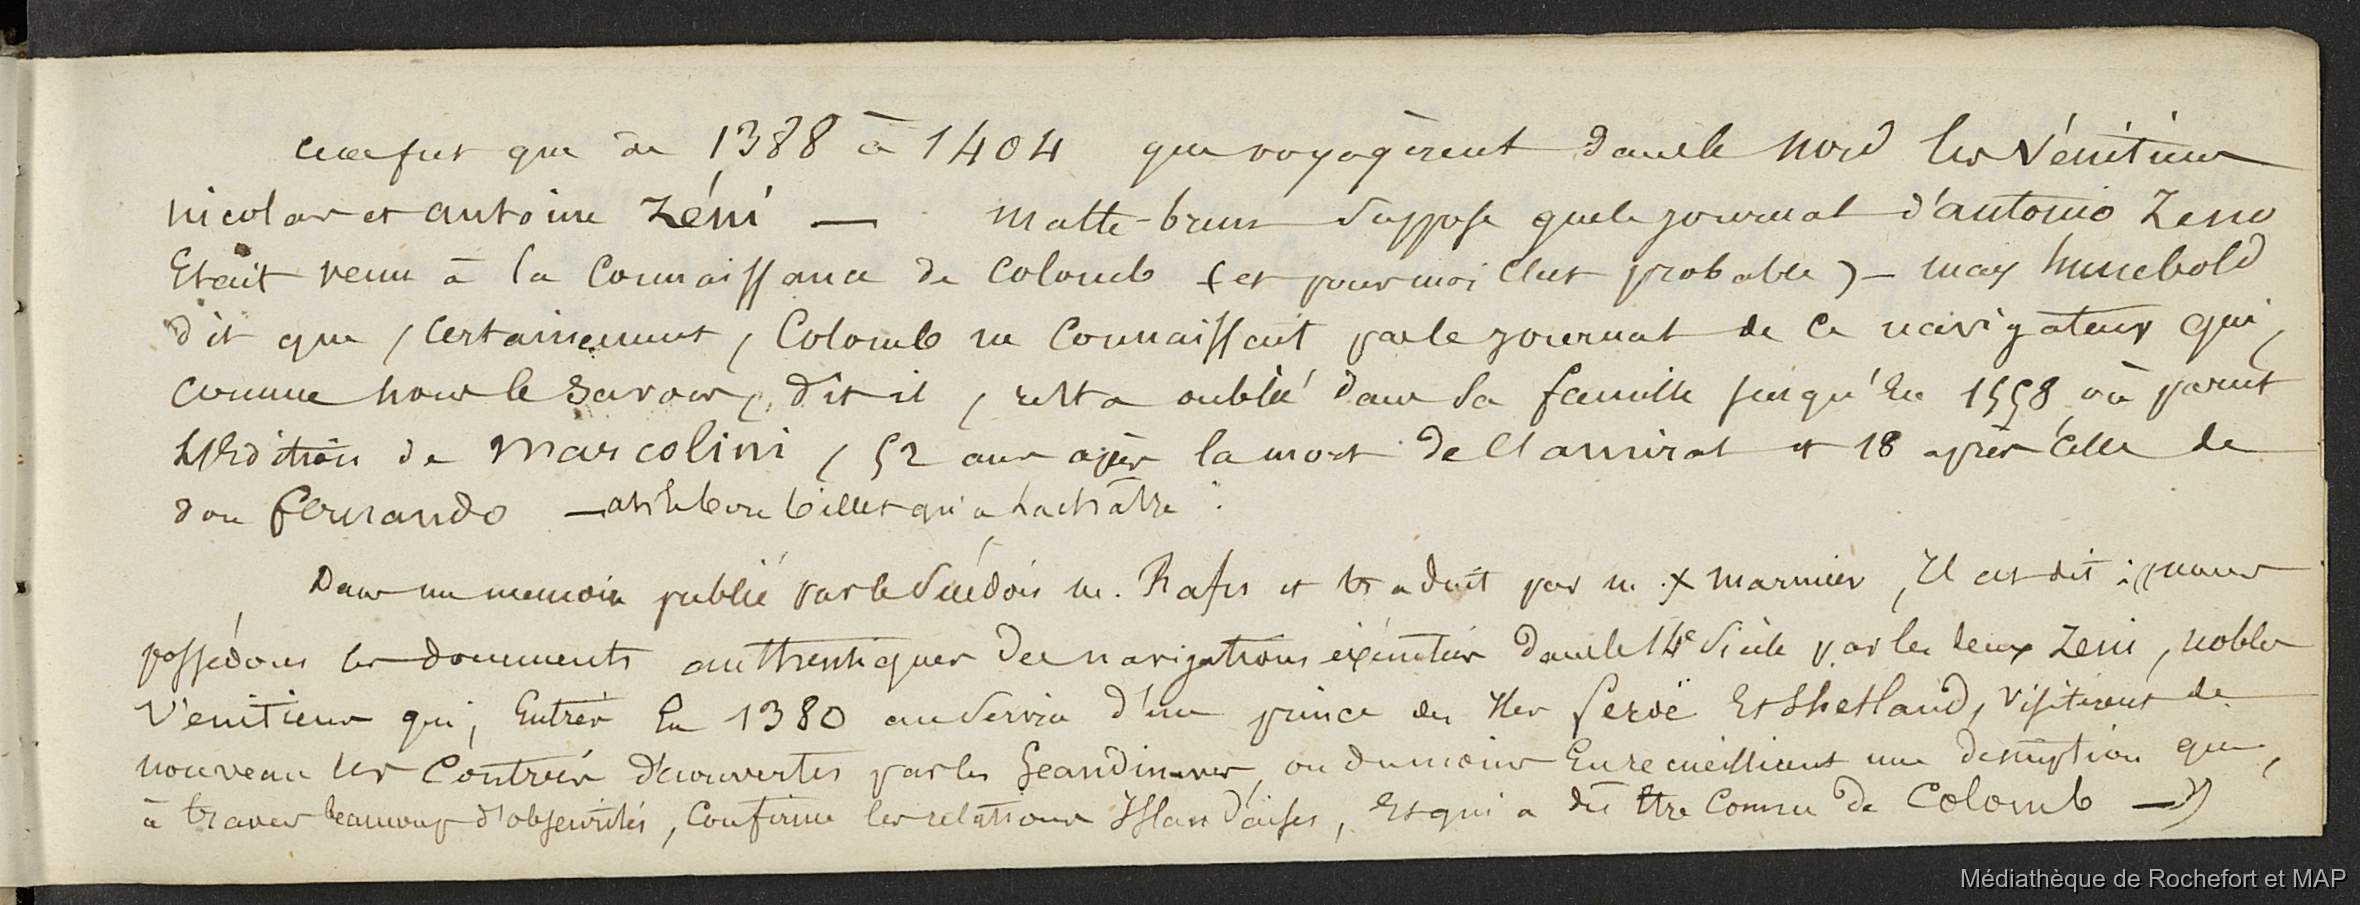 ce ne fut que de 1388 à 1404 que voyagèrent dans le nord les Vénitiens
nicolas et antoine Zéni — malte-brun suppose que le journal d'antonio Zeno
Etait venu à la Connaissance de Colomb (et pour moi c'est probable) — mais humebold
dit que, certainement, Colomb ne Connaissait pas le journal de ce navigateur qui,
comme nous le savons, dit il, resta oublié dans sa famille jusqu'en 1558 où parut
l'Edition de Marcolini, 52 ans après la mort de l'amiral et 18 après celle de
don fernando — ah le bon billet qu'a Lachâtre".
Dans un memoire publié par le Suédois m. Rafn et traduit par m. X marmier, Il est dit : "nous
possédons les documents authentiques des navigations exécutées dans le 14e Siècle par les deux Zeni, nobles
Vénitiens qui, Entrés En 1380 au Service d'un prince des Iles feroë Et Shetland, visitèrent de
nouveau les Contrées découvertes par les Scandinaves, ou du moins En recueillirent une description qui,
à travers beaucoup d'obscurités, Confirme les relations Islandaises, Et qui a dû être Connu de Colomb —")